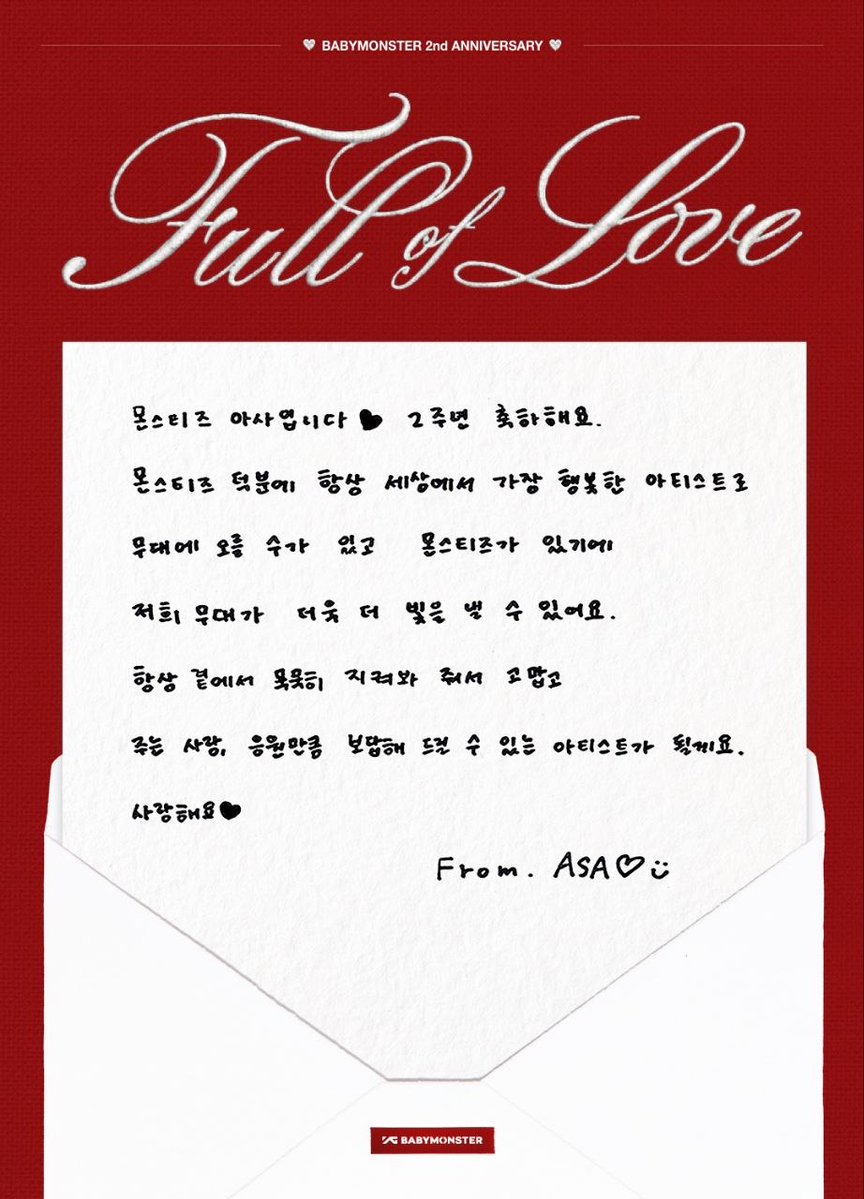 BABYMONSTER 2nd ANNIVERSARY
Full of Love
몬스티즈 아사입니다♥ 2주년 축하해요.
몬스티즈 덕분에 항상 세상에서 가장 행복한 아티스트로
무대에 오를 수가 있고 몬스티즈가 있기에
저희 무대가 더욱 더 빛을 낼 수 있어요.
항상 곁에서 묵묵히 지켜와 줘서 고맙고
주는 사랑, 응원만큼 보답해 드릴 수 있는 아티스트가 될게요.
사랑해요♥
From. ASA♡
YG BABYMONSTER